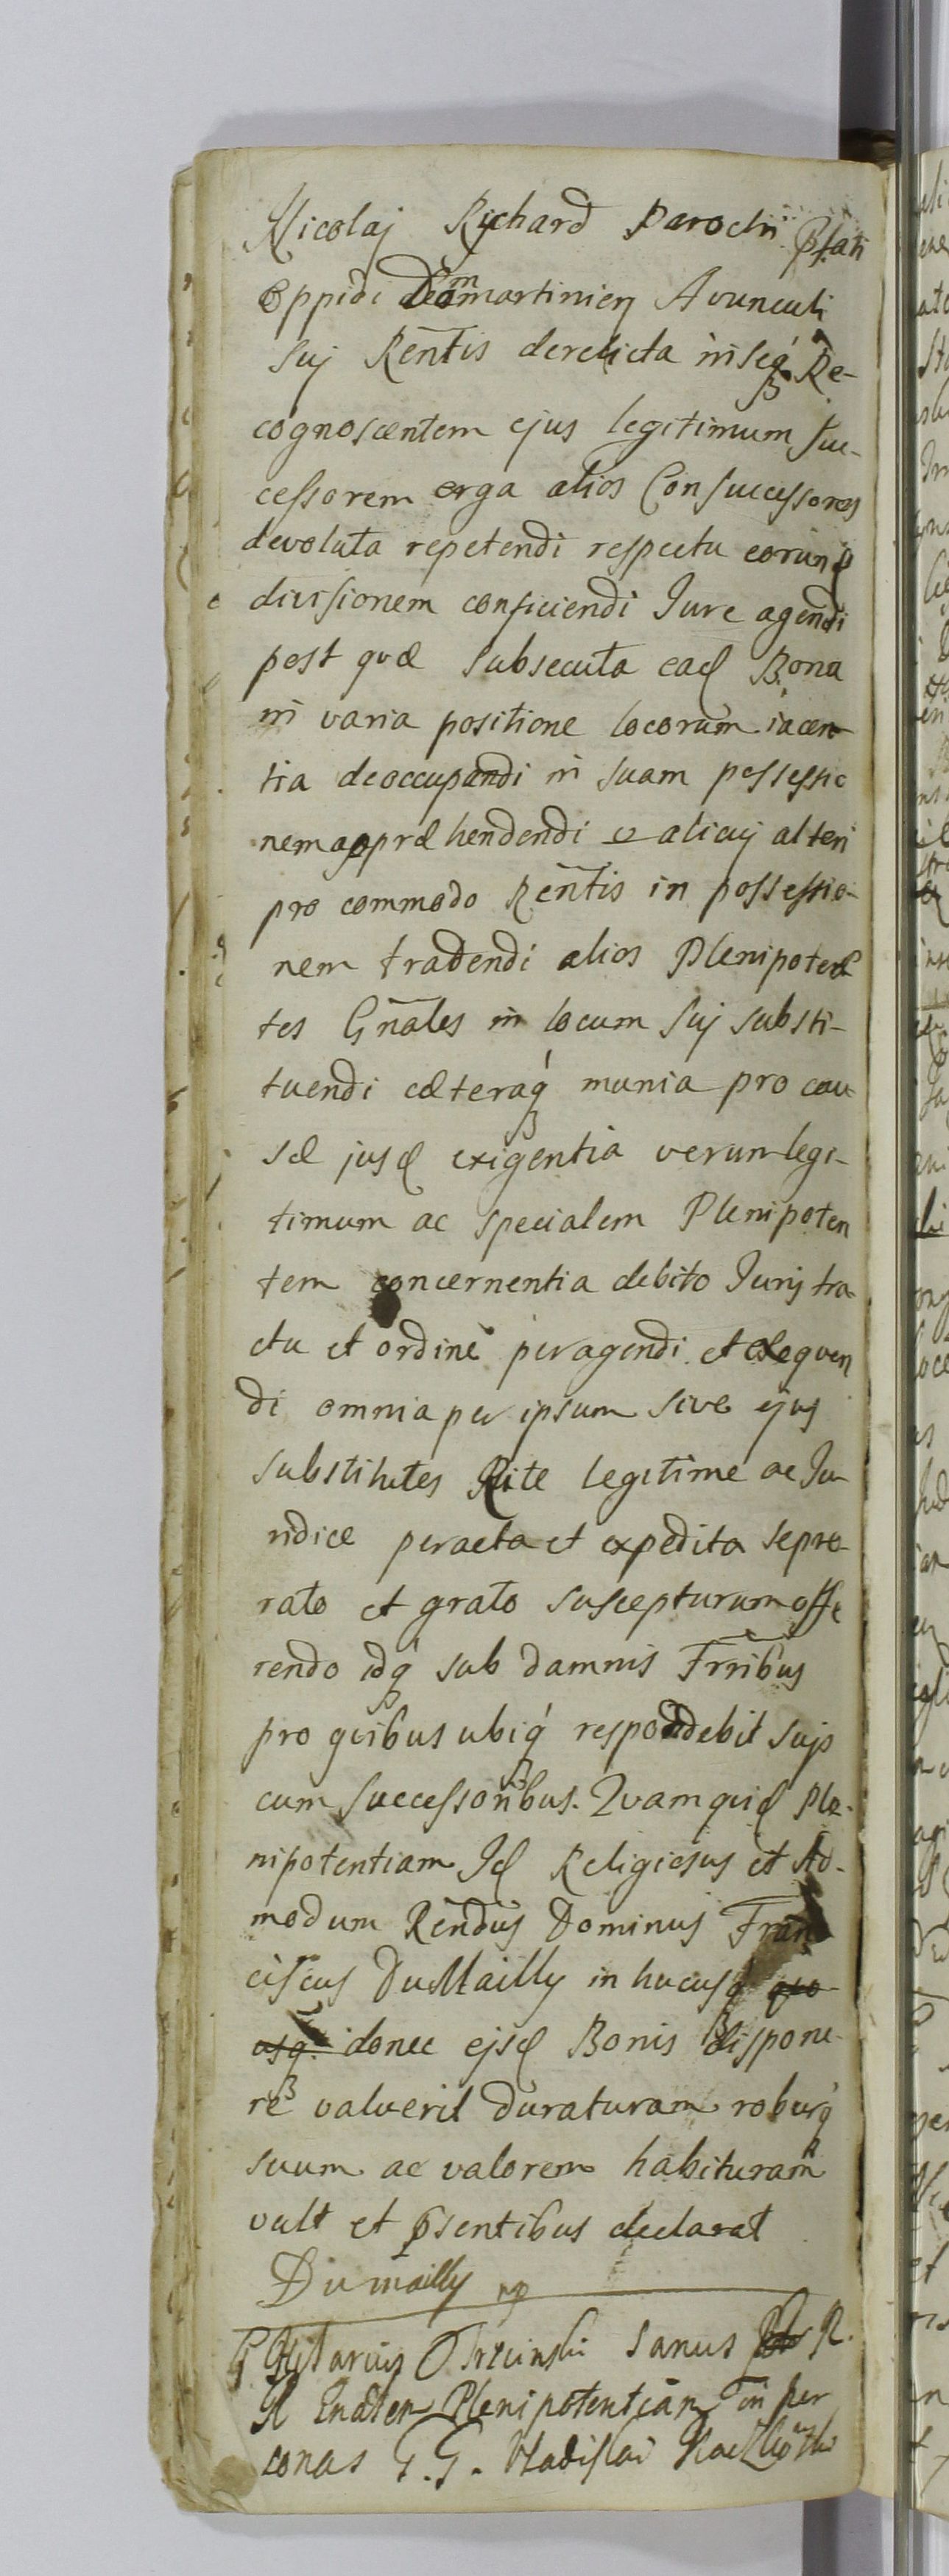 Nicolaj Rychard Parochi Pſati
Oppidi Dommartinien Avunculi
suj Rentis derelicta inseq Re-
cognoscentem ejus legitimum suc-
cessorem erga alios Consuccessores
devoluta repetendi respectu eorund
divisionem conficiendi Jure agendi
post quæ subsecuta ead Bona
in varia positione locorum iacen-
tia deoccupandi in suam possessio
nem appræhendendi et alicuj alteri
pro commodo Rentis in possessio-
nem tradendi alios Plenipoten
tes Gnales in locum suj substi-
tuendi cæteraq munia pro cau-
sæ jusd exigentia verum legi-
timum ac specialem Plenipoten
tem concernentia debito Juris tra-
ctu et ordine peragendi et exequen
di omnia per ipsum sive ejus
substitutes Rite legitime ac Ju-
ridice peracta et expedita se pro
rato et grato suscepturum offe
rendo idq sub damnis Frribus
pro quibus ubiq respondebit sujs
cum successoribus. Quam quid Ple-
nipotentiam Id Religiosus et Ad-
modum Rendus Dominus Fran
ciscus DuMailly in hucusq quo
usq donec ejsd Bonis dispone-
re valuerit duraturam roburq
suum ac valorem habituram
vult et psentibus declarat
Dumailly mp
G Hilarius Ostrzcinski sanus R.
R Eadem Plenipotentiam in per
sonas G. G. Vladislai